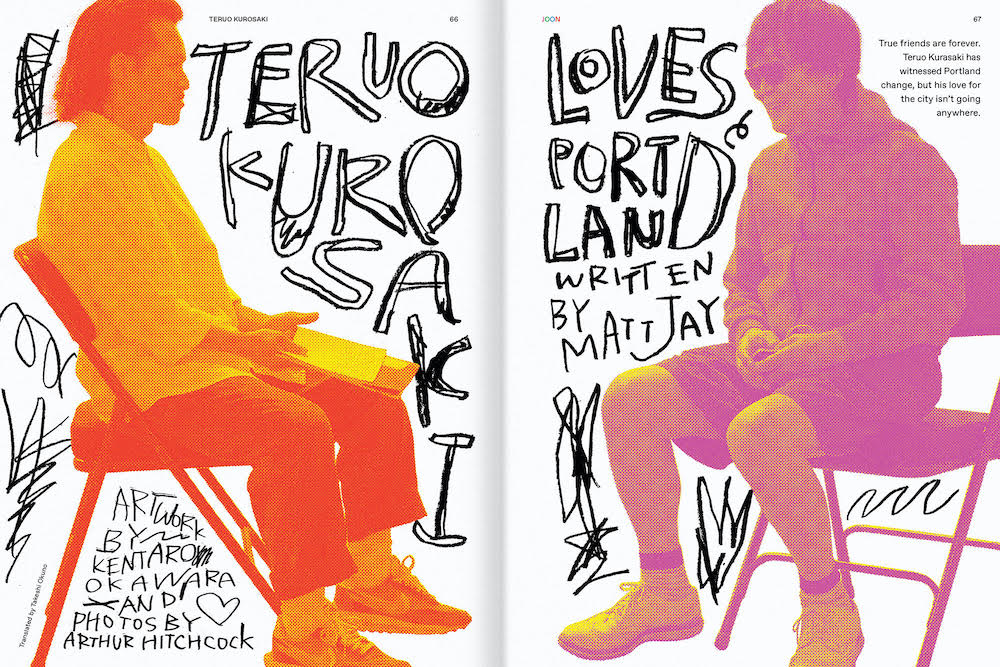 TERUO KUROSAKI
66
TERUO
KURO
SA
K
I
ARTWORK
BY
KENTARO
OKAWARA
AND
PHOTOS BY
ARTHUR HITCHCOCK
Translated by Takeshi Okuno
JOON
67
LOVES
PORT
LAND
WRITTEN
BY
MATT JAY
True friends are forever.
Teruo Kurasaki has
witnessed Portland
change, but his love for
the city isn’t going
anywhere.